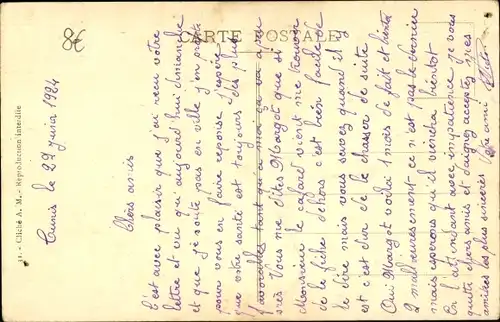 CARTE POSTALE
8€
31. - Cliché A. M. - Reproduction interdite
Tunis le 29 Juin 1924
Chers amis
C'est avec plaisir que j'ai recu votre
lettre et vu qu'aujourd'hui dimanche
et que je reste pas en ville j'en profite
pour vous en faire reponse j'espère
que votre santé est toujours des plus
favorables tant qu'a moi ça va à peu
près Vous me dites Margot que si
Monsieur le cafard vient me trouver
de le fiche dehors c'est bien facile de
le dire mais vous savez quand il y
est c'est dur de le chasser de suite
Oui Margot voilai 1 mois de fait et
malheureusement ce n'est pas le dernier
mais esperons qu'il viendra bientot
En attendant avec impatience je vous
quitte chers amis et daignez acceptez mes
amitiés les plus sincères Votre ami